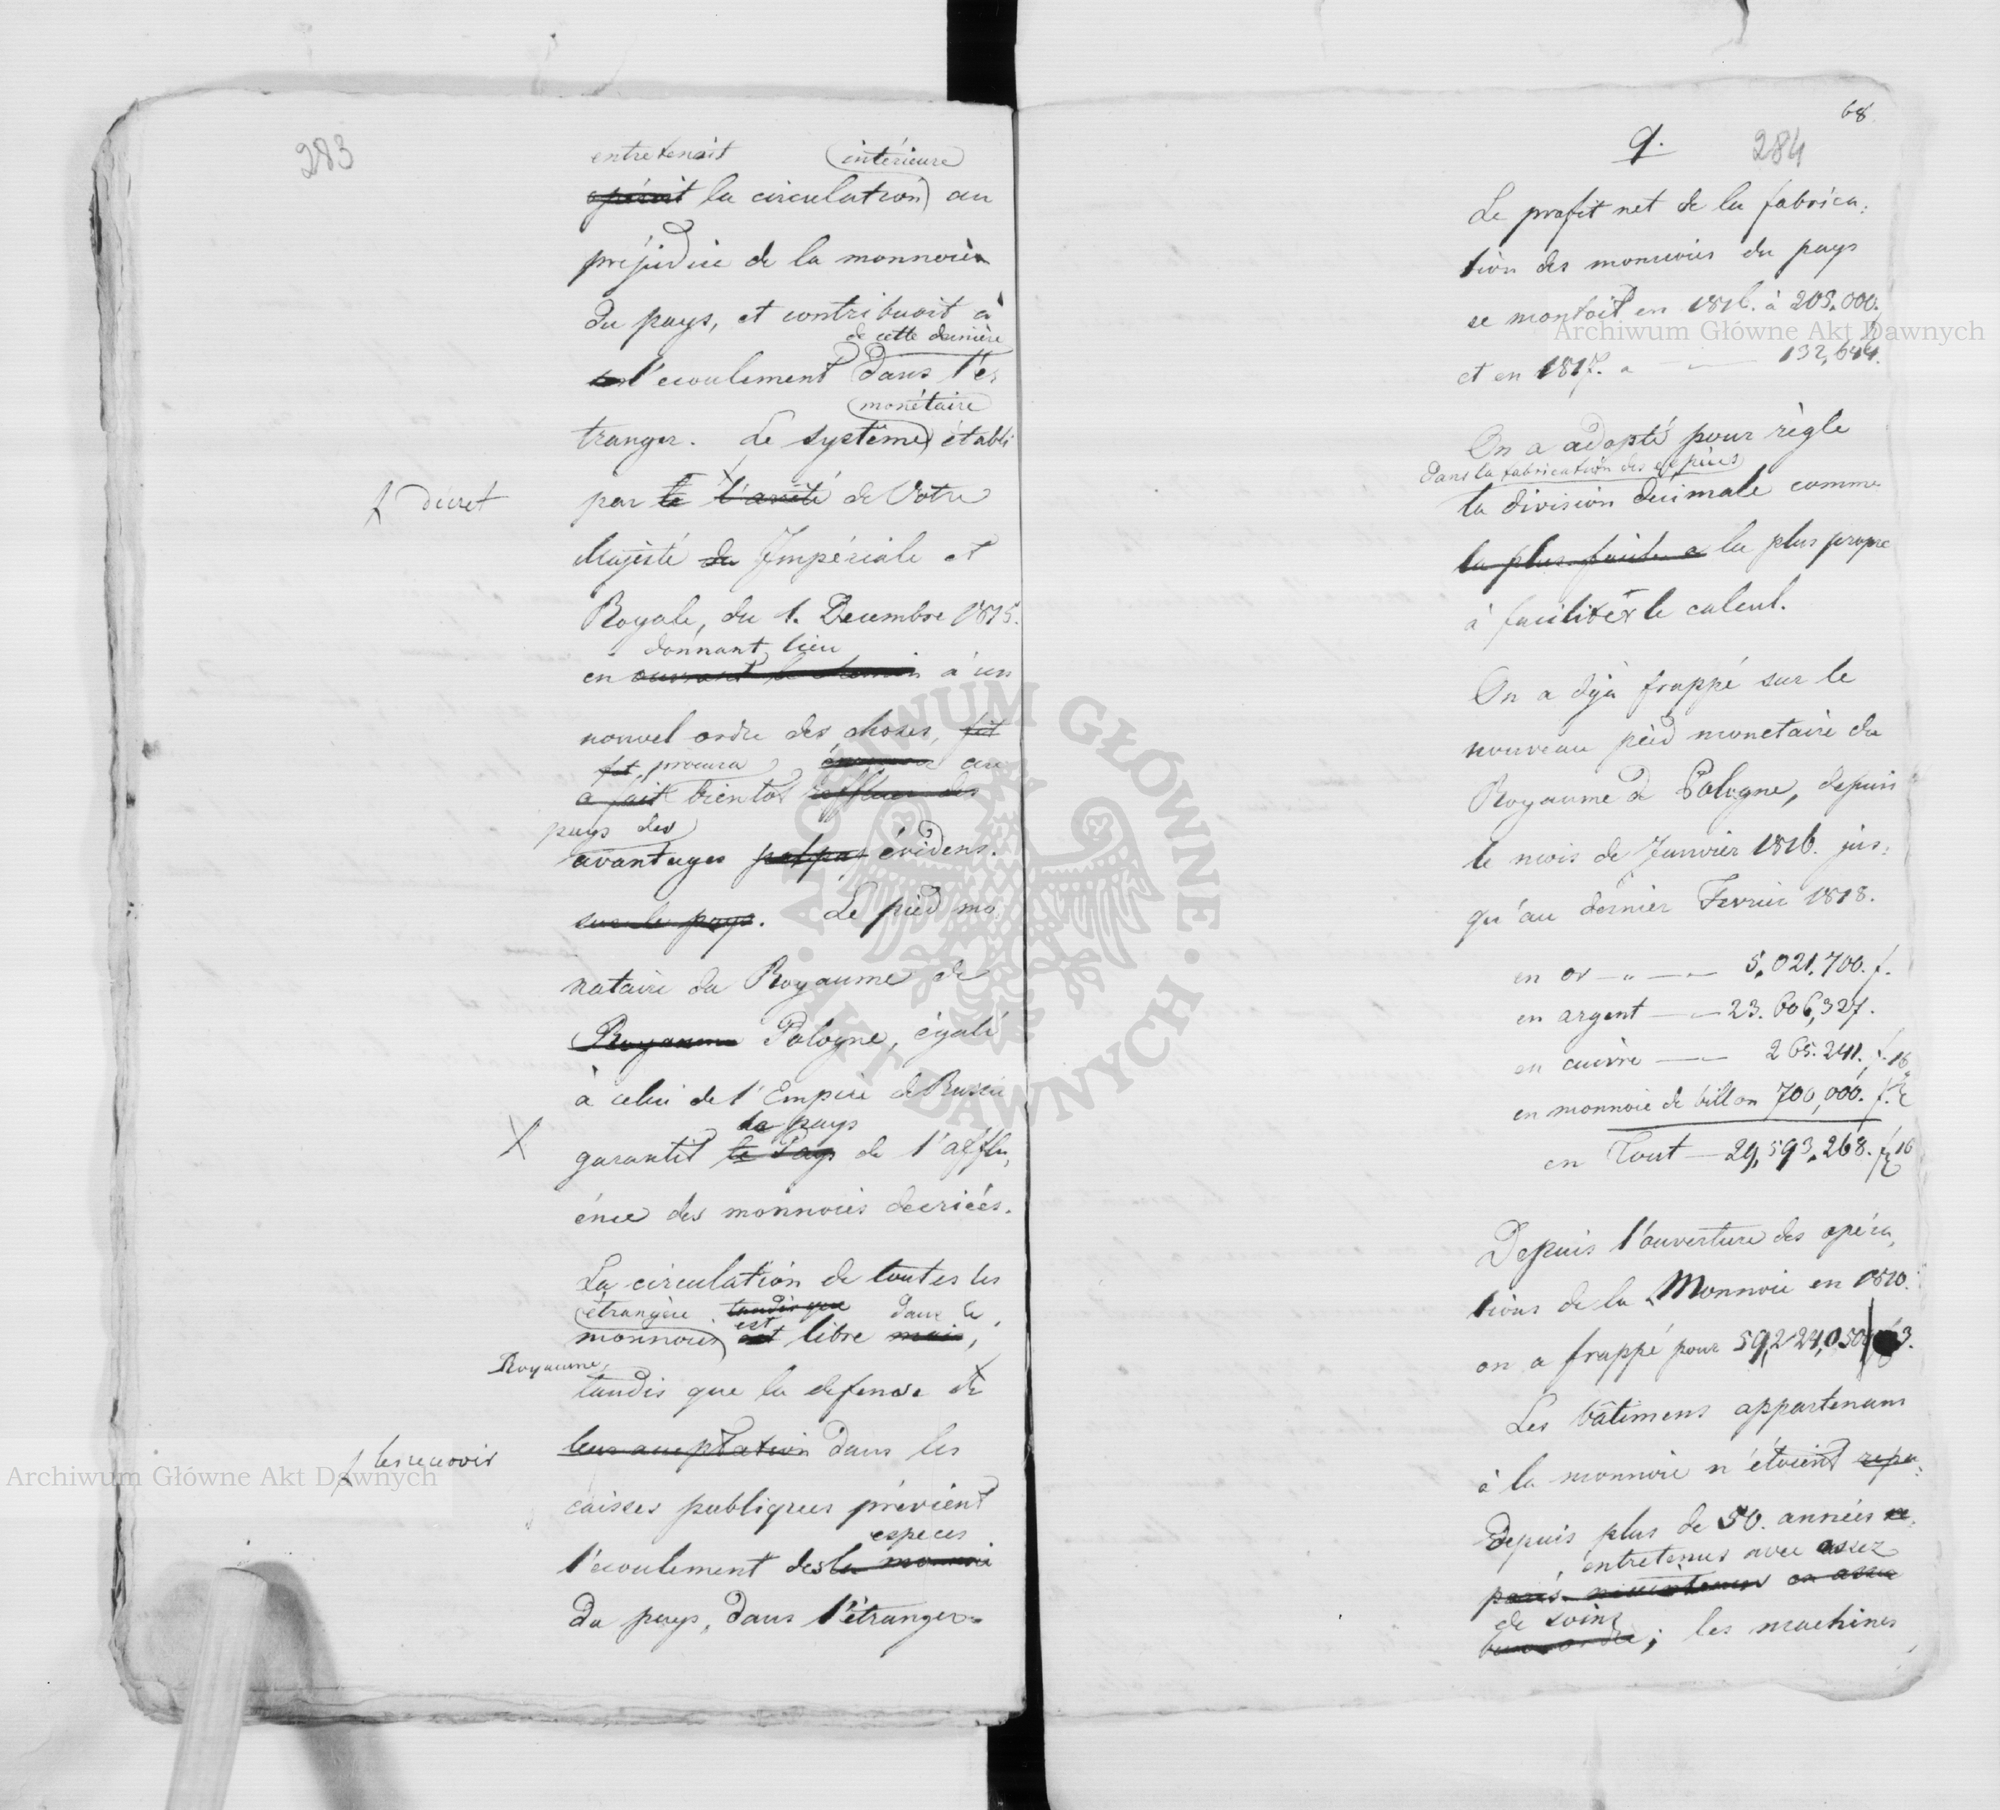 283
entretenoit intérieure
opéroit la circulation au
préjudice de la monnoie
du pays, et contribuoit à
de cette dernière
l'ecoulement dans l'é
monétaire
tranger. Le système établi
décret
par le l'arrêté de Votre
Majesté du Impériale et
Royale, du 1. Decembre 1815.
donnant lieu
en ouvrant le chemin à un
nouvel ordre des choses, fit
fit procura au
a fait bientôt affluer des
pays des
avantages palpa évidens.
sur le pays. Le pied mo
nataire du Royaume de
Royaume Pologne, égalé
à celui de l'Empire de Russie
le pays
garantit le Pays de l'afflu,
ence des monnoies decriées.
La circulation de toutes les
étrangère tandis que dans le
monnoies est libre mais,
Royaume,
tandis que la defense de
les recevoir
leur acceptation dans les
caisses publiques prévient
especes
l'ecoulement des la monnoie
du pays, dans l'étranger.
68
9. 284
Le profit net de la fabrica:
tion des monnoies du pays
se montoit en 1816. à 205.000.
et en 1817. a — 132,644.
On a adopté pour règle
dans la fabrication des espèces
la division décimale comme
la plus facile a la plus propre
à faciliter le calcul.
On a déjà frappé sur le
nouveau pied monetaire du
Royaume de Pologne, depuis
le mois de Janvier 1816. jus:
qu'au dernier Fevrier 1818.
en or — " — " 5,021,700. f.
en argent — " 23.606,327.
en cuivre — " 265.241. f. 16
en monnoie de billon 700,000. f.
en Tout — 29,593,268. f 16
Depuis l'ouverture des opéra,
tions de la Monnoie en 1810.
on a frappé pour 59,224,050 3.
Les bâtimens appartenans
à la monnoie n'étoient repa:
depuis plus de 50. années re,
entretenus avec assez
de soins
; les machines
Archiwum Główne Akt Dawnych
Archiwum Główne Akt Dawnych
ARCHIWUM GŁÓWNE · AKT DAWNYCH ·